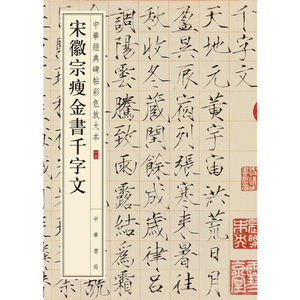 千字文
天地元黄宇宙洪荒日月
盈昃辰宿列張寒來暑往
秋收冬藏閏餘成歲律呂
調陽雲騰致雨露結為霜
中華經典碑帖彩色放大本
宋徽宗瘦金書千字文
中華書局